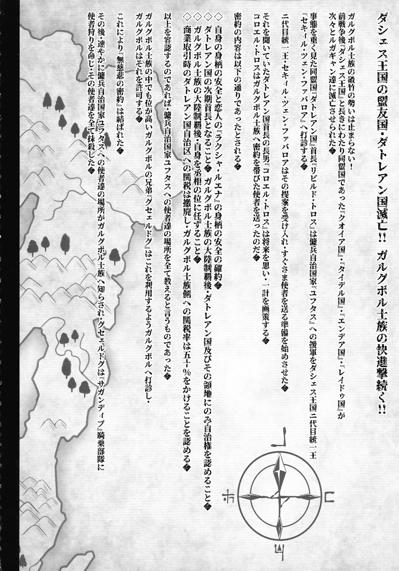 ダシェス王国の盟友国・ダトレアン国滅亡!! ガルグボルド族の快進撃続く!!
ガルグボル士族の破竹の勢いは止まらない・
前戦争後「ダシェス王国」と長きにわたり同盟国であった「クオイア国」・「タイデル国」・「エンデア国」・「レイドゥ国」が
次々とルガギャン達に滅亡させられた◆
事態を重く見た同盟国「ダトレアン国」首長「リビルド・トロス」は傭兵自治国家「ユフタス」への援軍をダシェス王国二代目統一王
「セキイル・ツェン・ファバロア」へ打診する◆
二代目統一王・セキイル・ツェン・ファバロアはその提案を受け入れ・すぐさま使者を送る準備を始めさせた◆
それを聞いていたダトレアン国首長の長男「コロエル・トロス」は将来を思い・一計を画策する◆
コロエル・トロスはガルグボル士族へ密約を帯びた使者を送ったのだ◆
密約の内容は以下の通りであったとされる◆
◇自身の身柄の安全と恋人の「ラクシャ・ルエナ」の身柄の安全の確約◆
◇ダトレアン国の次期首長となること・ガルグボル士族の大陸制覇後・ダトレアン国及びその領地にのみ自治権を認めること◆
◇ガルグボル士族の大陸制覇後・自身を丞相の位に任ずること◆
◇商業取引時のダトレアン国自治区への関税は撤廃し・ガルグボル士族側への関税率は五十%をかけることを認める◆
以上を容認するのであれば・傭兵自治国家ユフタスへの使者達の場所を全て教えると言うものであった◆
ガルグボル士族の中でも位が高いガルグボルの兄弟「グセェルドグ」はこれを利用するようガルグボルへ打診し・
ガルグボルはそれを許可する◆
これにより「無慈悲の密約」は結ばれた◆
その後・速やかに傭兵自治国家ユフタスへの使者達の場所がガルグボル士族へ知らされ・グセェルドグは「サガンディブ」騎乗部隊に
使者狩りを命じ・その使者達を全て抹殺した◆